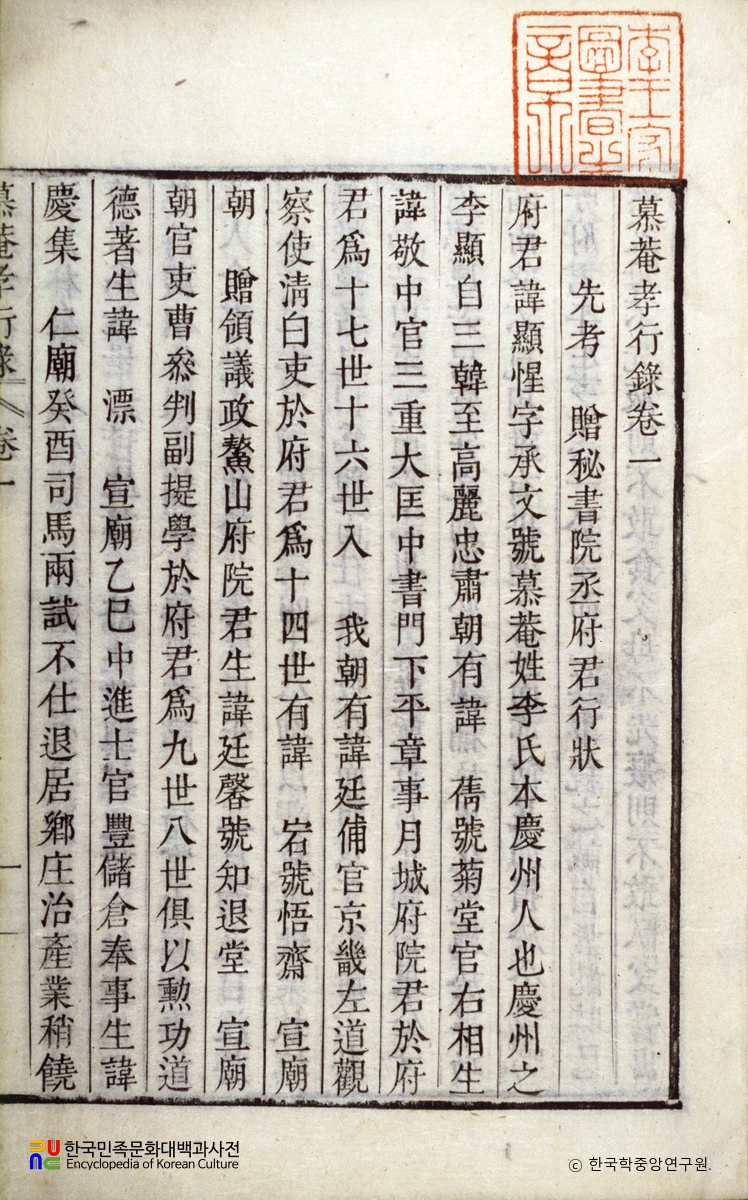 李王家
圖書之
章
慕菴孝行錄卷一
先考 贈秘書院丞府君行狀
府君諱顯惺字承文號慕菴姓李氏本慶州人也慶州之
李顯自三韓至高麗忠肅朝有諱 蒨號菊堂官右相生
諱敬中官三重大匡中書門下平章事月城府院君於府
君爲十七世十六世入 我朝有諱廷俌官京畿左道觀
察使淸白吏於府君爲十四世有諱 岩號悟齋 宣廟
朝 贈領議政鰲山府院君生諱廷馨號知退堂 宣廟
朝官吏曹叅判副提學於府君爲九世八世俱以勲功道
德著生諱 漂 宣廟乙巳中進士官豐儲倉奉事生諱
慶集 仁廟癸酉司馬兩試不仕退居鄕庄治產業稍饒
慕菴孝行錄 卷一
一
한국민족문화대백과사전
Encyclopedia of Korean Culture
© 한국학중앙연구원.